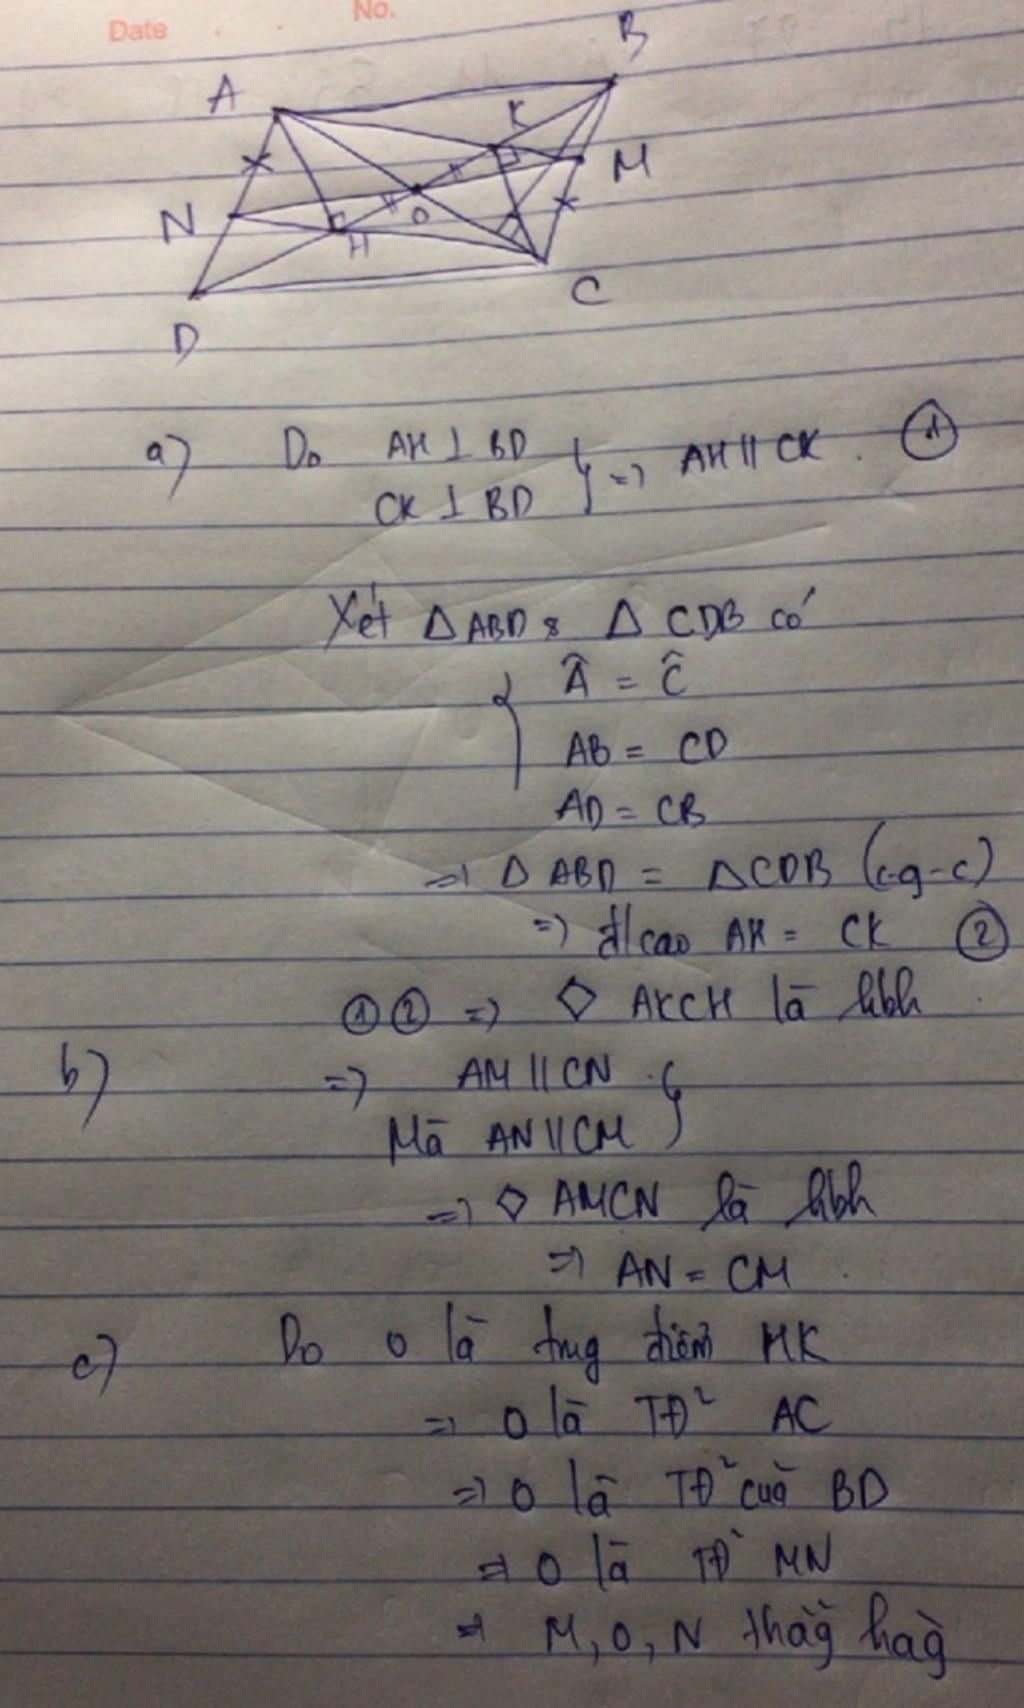 Date
No.
A
B
K
M
N
O
H
C
D
a) Do AH ⊥ BD
CK ⊥ BD } => AH // CK . ①
Xét △ ABD & △ CDB có
{ Â = Ĉ
AB = CD
AD = CB
=> △ ABD = △CDB (c-g-c)
=> đ/cao AH = CK ②
① ② => ◇ AKCH là hbh
b) => AM // CN
Mà AN // CM }
=> ◇ AMCN là hbh
=> AN = CM .
c) Do O là trug điểm HK
=> O là TĐ² AC
=> O là TĐ² của BD
=> O là TĐ² MN
=> M, O, N thẳg hàg